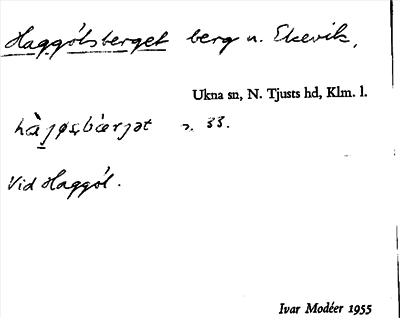 Haggölsberget berg n. Ekevik,
Ukna sn, N. Tjusts hd, Klm. l.
33.
Vid Haggöl.
Ivar Modéer 1955